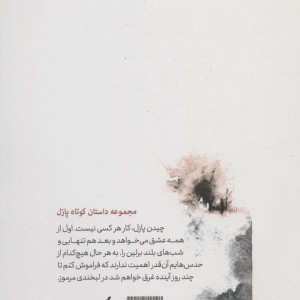 مجموعه داستان کوتاه پازل
چیدن پازل، کار هر کسی نیست. اول از
همه عشق می‌خواهد و بعد هم تنهایی و
شب‌های بلند برلین را. به هر حال هیچ‌کدام از
حدس‌هایم آن‌قدر اهمیت ندارند که فراموش کنم تا
چند روز آینده غرق خواهم شد در لبخندی مرموز.